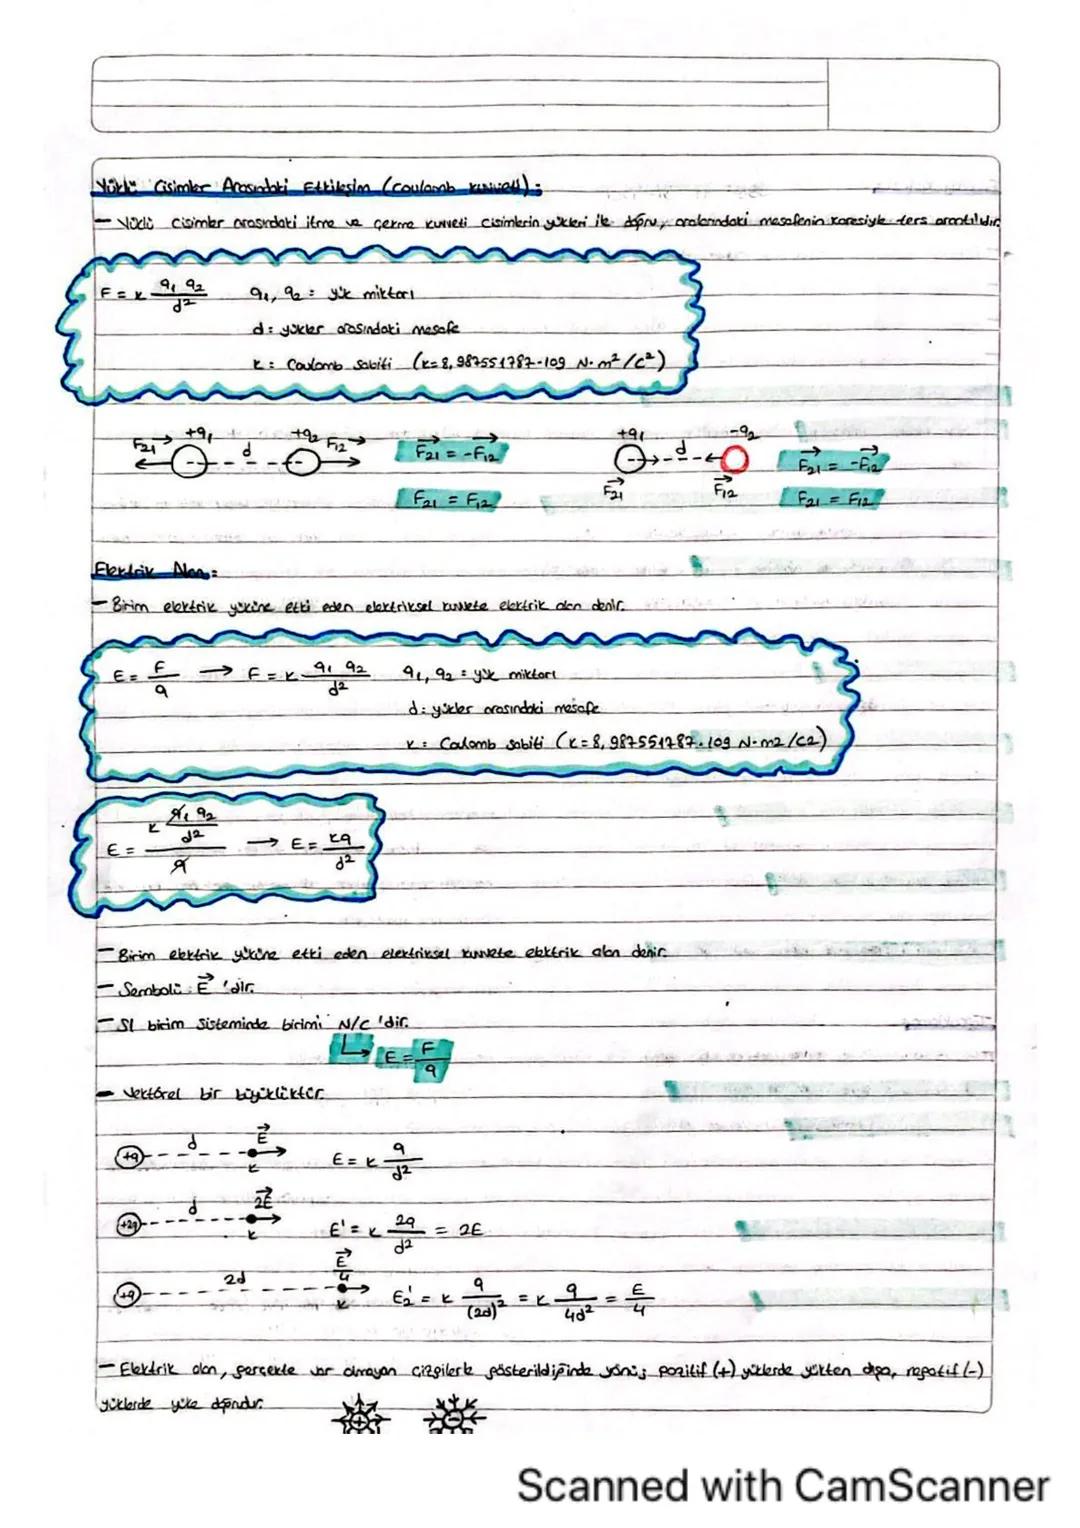 Yüklü Cisimler Arasındaki Etkileşim (Coulomb kuvveti) :
— Yüklü cisimler arasındaki itme ve çekme kuvveti cisimlerin yükleri ile doğru, aralarındaki mesafenin karesiyle ters orantılıdır.
F = k q1 q2 / d2 q1, q2 = yük miktarı
d: yükler arasındaki mesafe
k: Coulomb sabiti (k=8,987551787·109 N·m²/c²)
F21 +q1 d +q2 F12 F21 = -F12 +q1 d -q2 F21 = -F12
F21 F12
F21 = F12 F21 = F12
Elektrik Alan :
— Birim elektrik yüküne etki eden elektriksel kuvvete elektrik alan denir.
E = F / q → F = k q1 q2 / d2 q1, q2 = yük miktarı
d: yükler arasındaki mesafe
k: Coulomb sabiti (k=8,987551787·109 N·m2/c2)
E = k q1 q2 / d2 / q → E = kq / d2
— Birim elektrik yüküne etki eden elektriksel kuvvete elektrik alan denir.
— Sembolü E 'dir.
— SI birim sisteminde birimi N/C 'dir.
↳ E = F / q
— Vektörel bir büyüklüktür.
+q d E k E = k q / d2
+2q d 2E k E' = k 2q / d2 = 2E
+q 2d E/4 k E2' = k q / (2d)2 = k q / 4d2 = E / 4
— Elektrik alan, gerçekte var olmayan çizgilerle gösterildiğinde yönü; pozitif (+) yüklerde yükten dışa, negatif (-)
yüklerde yüke doğrudur.
+ -
Scanned with CamScanner